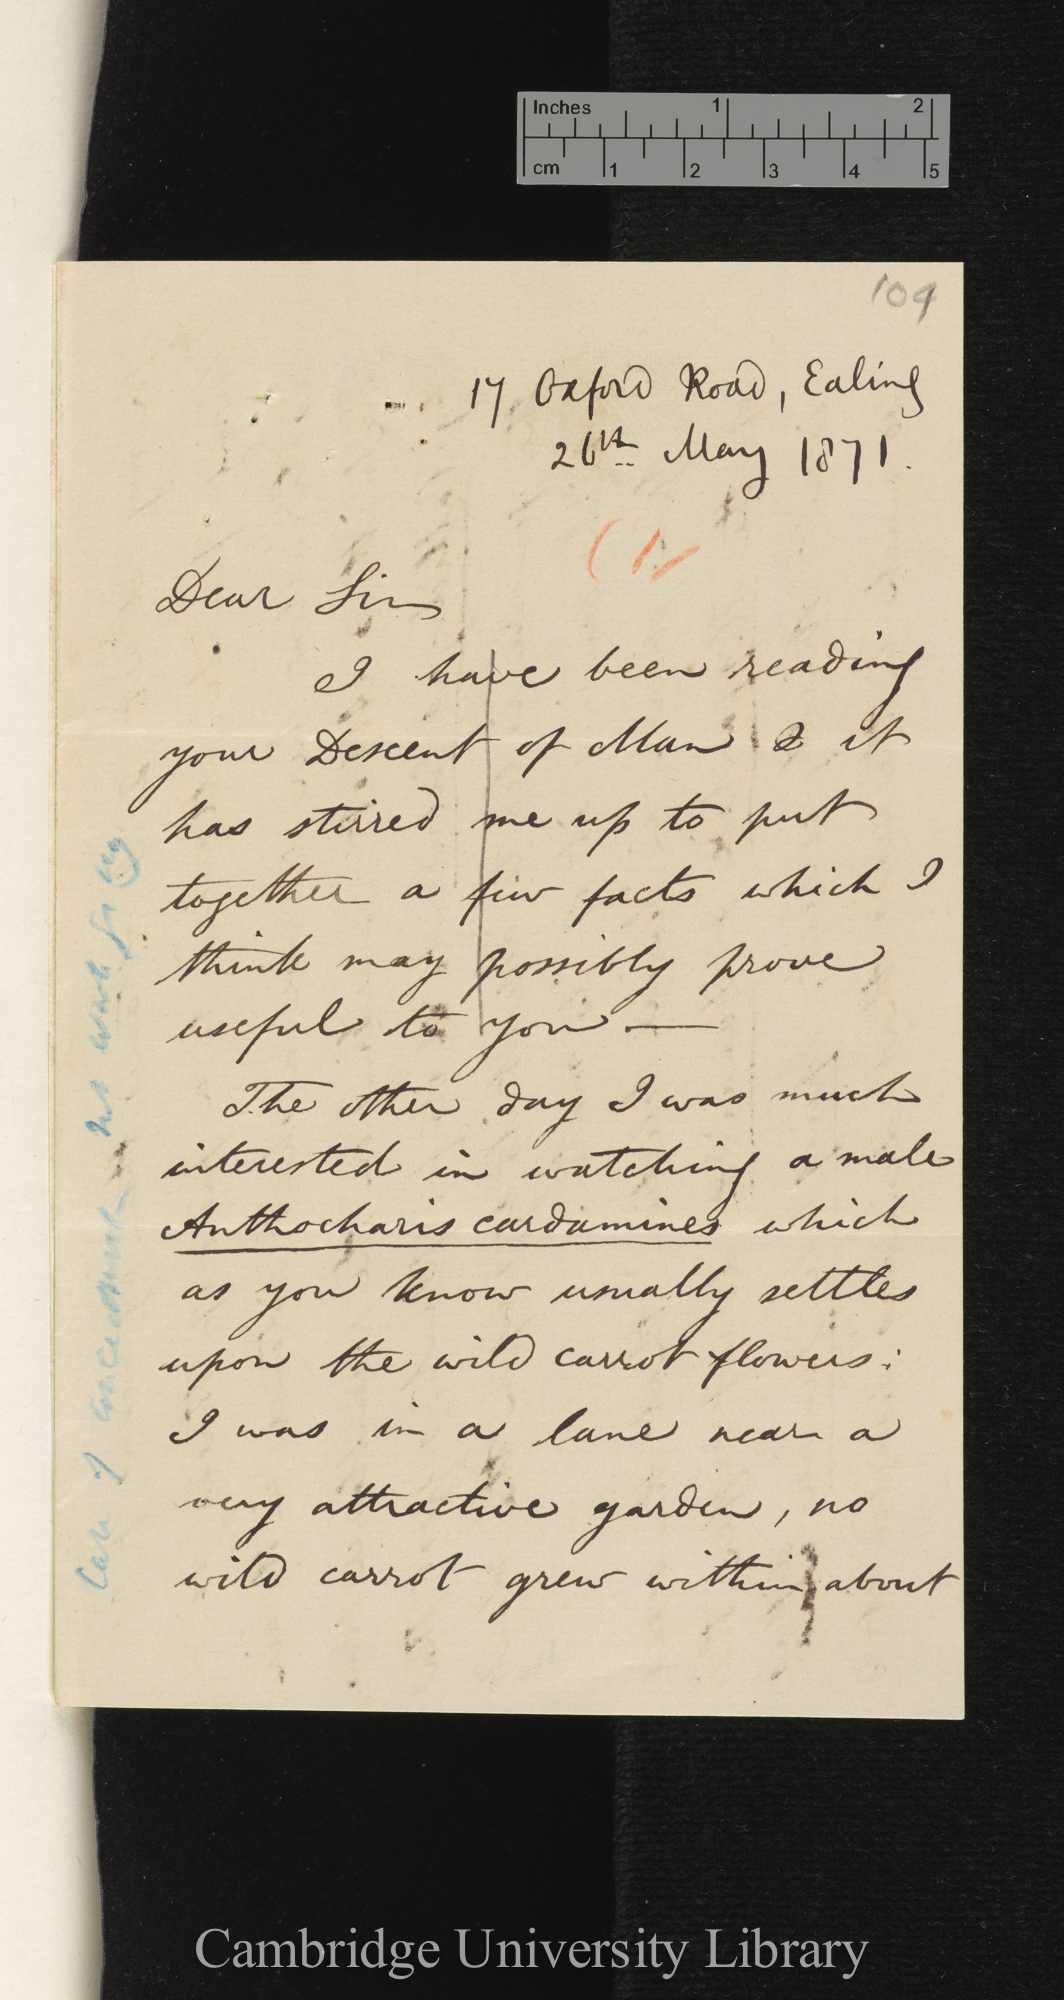 Inches 1 2
cm 1 2 3 4 5
109
17 Oxford Road, Ealing
26th May 1871.
(1
Dear Sir
I have been reading
your Descent of Man & it
has stirred me up to put
together a few facts which I
think may possibly prove
useful to you —
The other day I was much
interested in watching a male
Anthocharis cardamines which
as you know usually settles
upon the wild carrot flowers:
I was in a lane near a
very attractive garden, no
wild carrot grew within about
Case of
Cambridge University Library